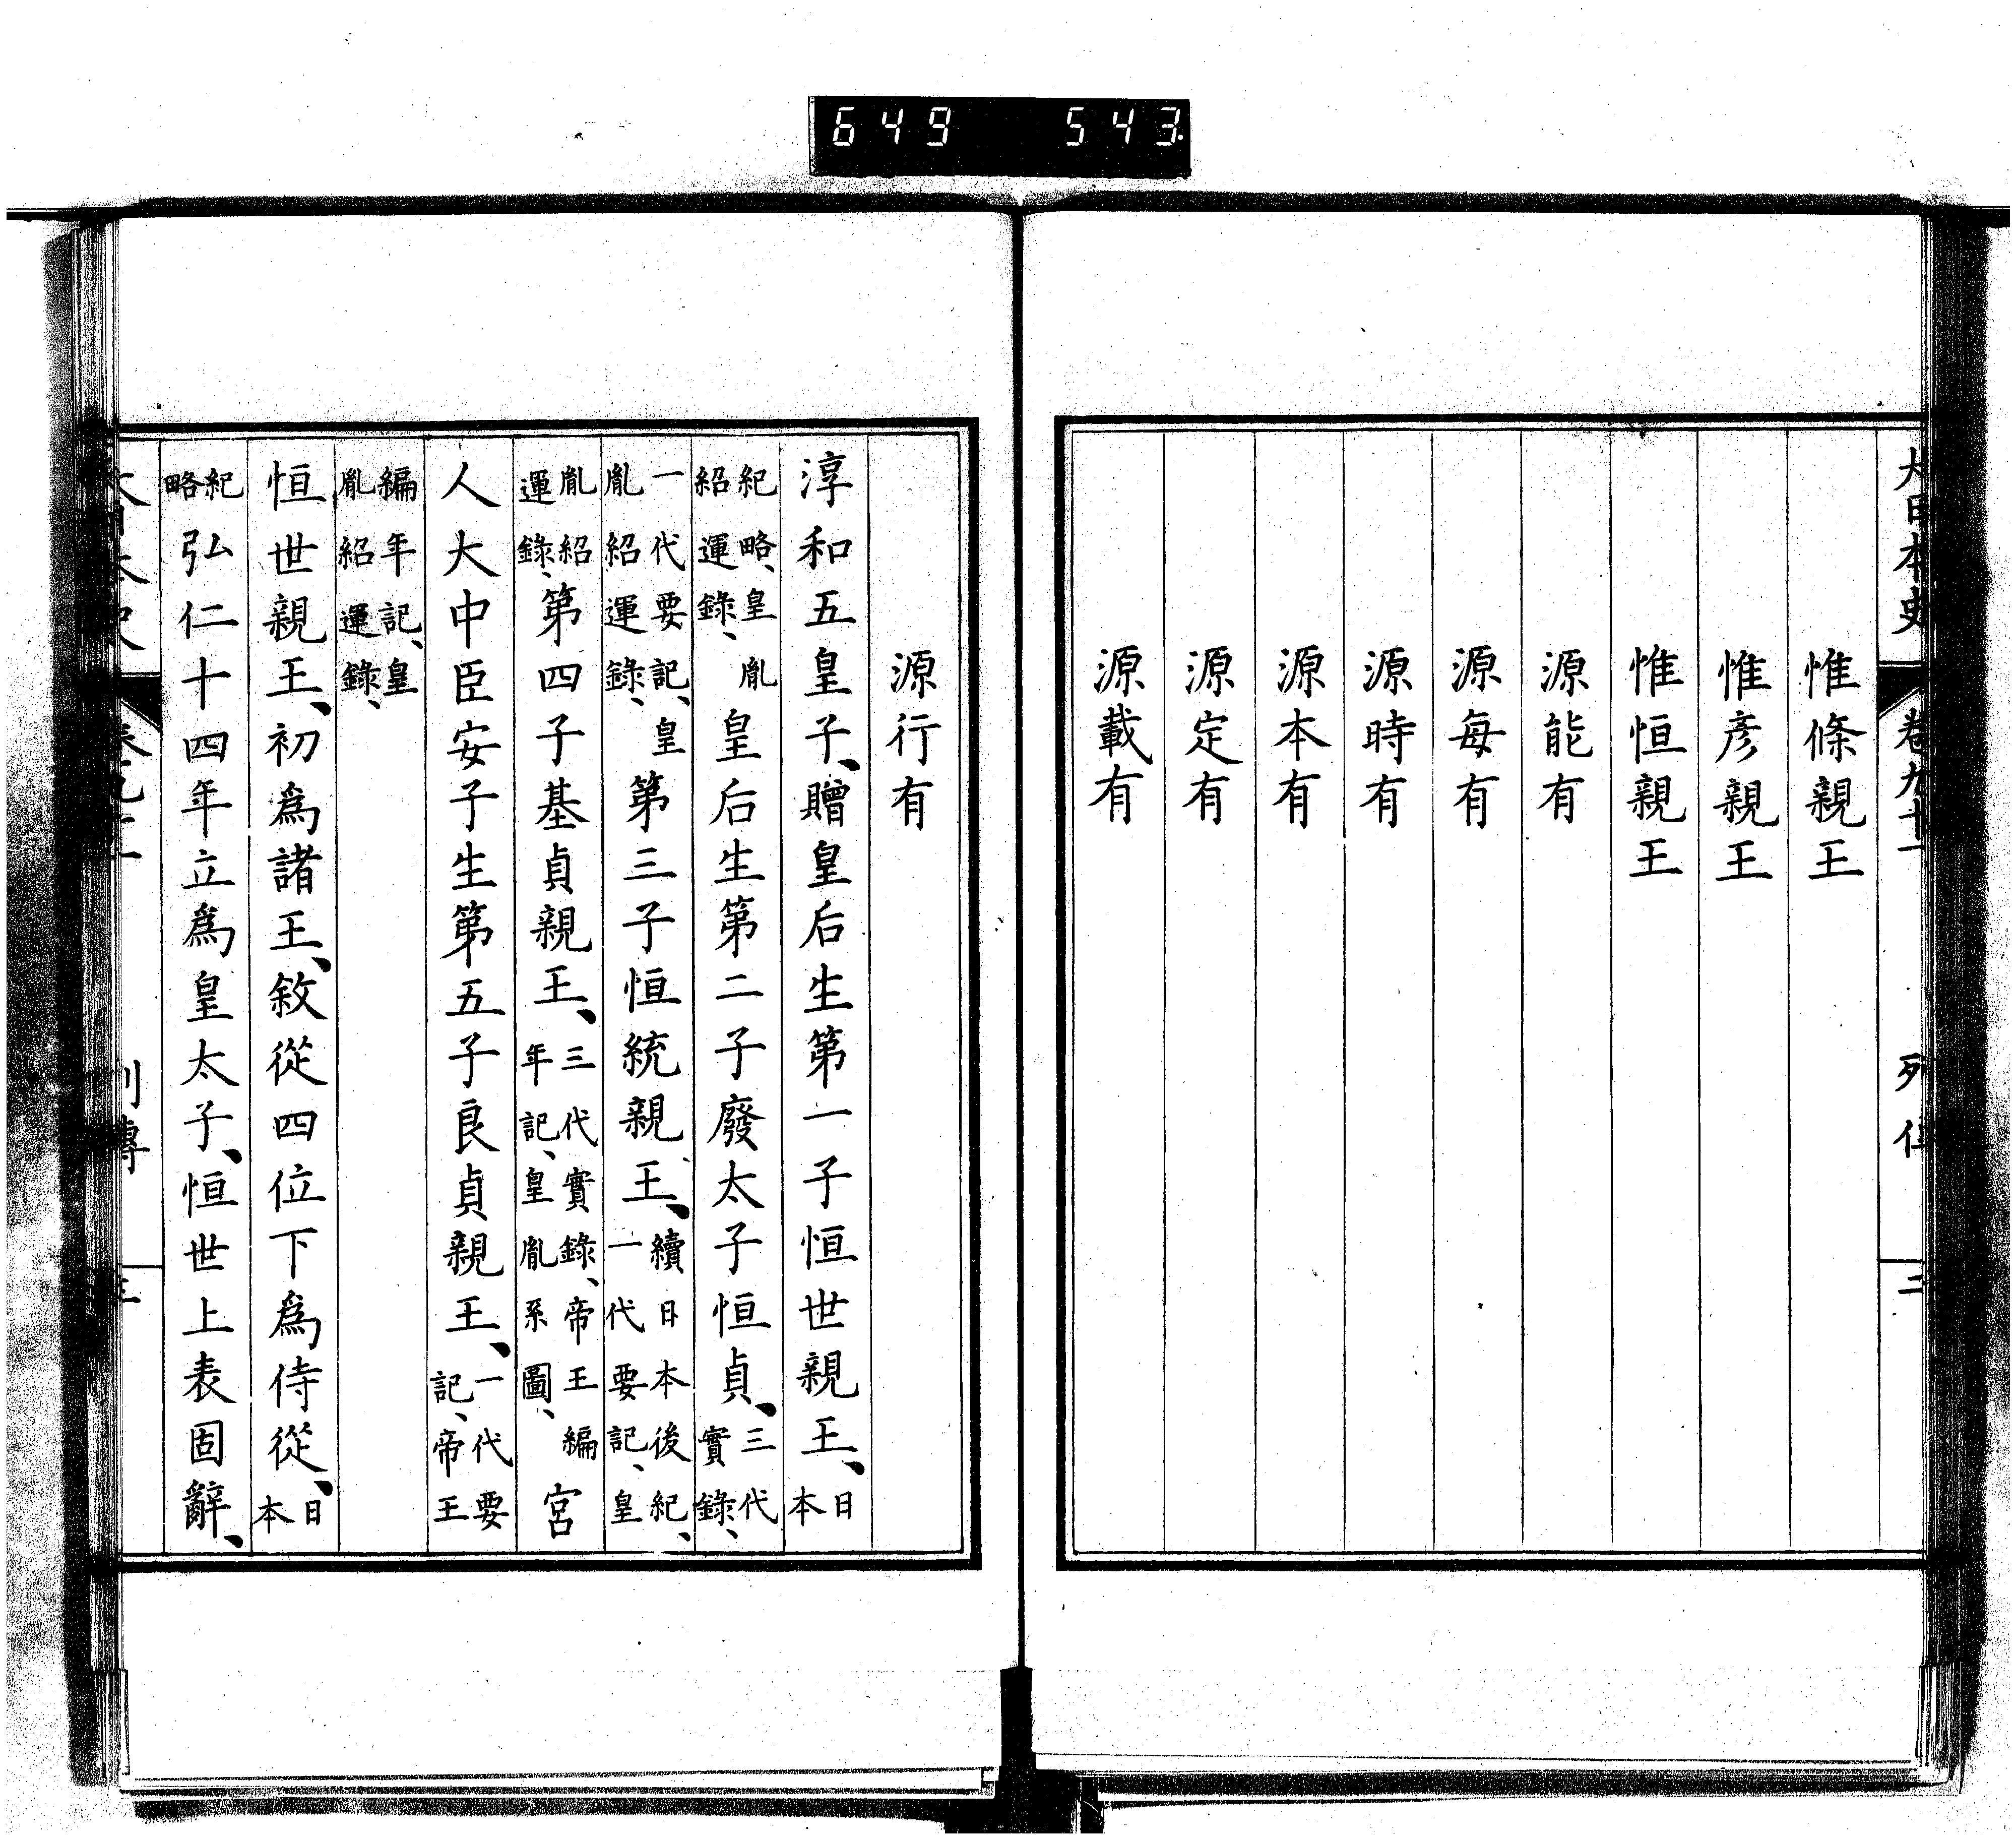 649 543
大日本史 卷九十一 列傳 二
惟條親王
惟彥親王
惟恒親王
源能有
源每有
源時有
源本有
源定有
源載有
源行有
淳和五皇子、贈皇后生第一子恒世親王、日本
紀略、皇胤紹運錄、皇后生第二子廢太子恒貞、三代實錄、
一代要記、皇胤紹運錄、第三子恒統親王、續日本後紀、一代要記、皇
胤紹運錄、第四子基貞親王、三代實錄、帝王編年記、皇胤系圖、宮
人大中臣安子生第五子良貞親王、一代要記、帝王
編年記、皇胤紹運錄、
恒世親王、初爲諸王、敘從四位下爲侍從、日本
紀略弘仁十四年立爲皇太子、恒世上表固辭、
大日本史 卷九十一 列傳 三